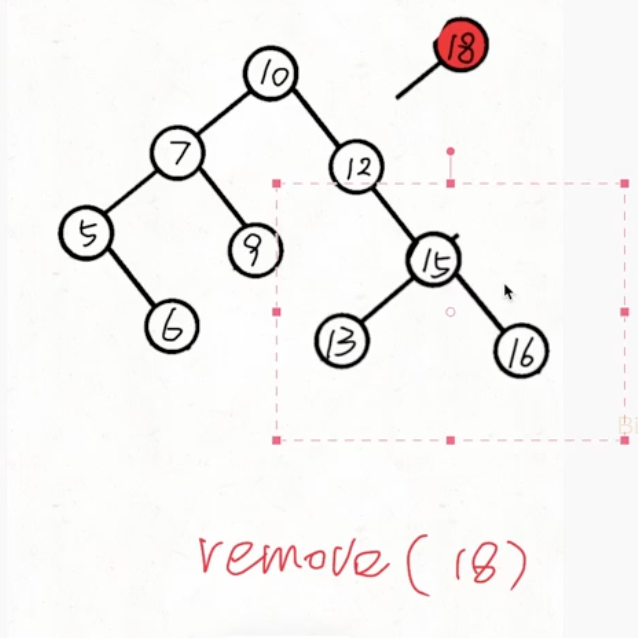 18
10
7
12
5
9
15
6
13
16
Bi
remove(18)